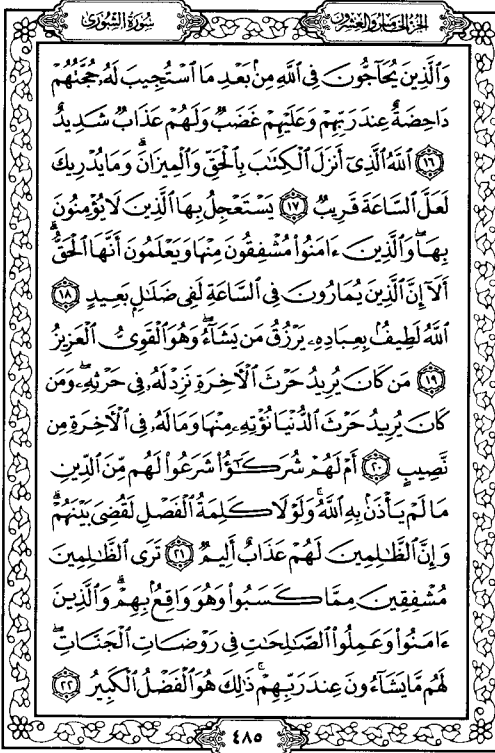 سُورَةُ الشُّورَىٰ
الجُزْءُ الخَامِسُ وَالعِشْرُونَ
وَٱلَّذِينَ يُحَآجُّونَ فِى ٱللَّهِ مِنۢ بَعْدِ مَا ٱسْتُجِيبَ لَهُۥ حُجَّتُهُمْ
دَاحِضَةٌ عِندَ رَبِّهِمْ وَعَلَيْهِمْ غَضَبٌ وَلَهُمْ عَذَابٌ شَدِيدٌ
١٦ ٱللَّهُ ٱلَّذِىٓ أَنزَلَ ٱلْكِتَٰبَ بِٱلْحَقِّ وَٱلْمِيزَانَۗ وَمَا يُدْرِيكَ
لَعَلَّ ٱلسَّاعَةَ قَرِيبٌ ١٧ يَسْتَعْجِلُ بِهَا ٱلَّذِينَ لَا يُؤْمِنُونَ
بِهَاۖ وَٱلَّذِينَ ءَامَنُوا۟ مُشْفِقُونَ مِنْهَا وَيَعْلَمُونَ أَنَّهَا ٱلْحَقُّۗ
أَلَآ إِنَّ ٱلَّذِينَ يُمَارُونَ فِى ٱلسَّاعَةِ لَفِى ضَلَٰلٍۭ بَعِيدٍ ١٨
ٱللَّهُ لَطِيفٌۢ بِعِبَادِهِۦ يَرْزُقُ مَن يَشَآءُۖ وَهُوَ ٱلْقَوِىُّ ٱلْعَزِيزُ
١٩ مَن كَانَ يُرِيدُ حَرْثَ ٱلْءَاخِرَةِ نَزِدْ لَهُۥ فِى حَرْثِهِۦۖ وَمَن
كَانَ يُرِيدُ حَرْثَ ٱلدُّنْيَا نُؤْتِهِۦ مِنْهَا وَمَا لَهُۥ فِى ٱلْءَاخِرَةِ مِن
نَّصِيبٍ ٢٠ أَمْ لَهُمْ شُرَكَٰٓؤُا۟ شَرَعُوا۟ لَهُم مِّنَ ٱلدِّينِ
مَا لَمْ يَأْذَنۢ بِهِ ٱللَّهُۚ وَلَوْلَا كَلِمَةُ ٱلْفَصْلِ لَقُضِىَ بَيْنَهُمْۗ
وَإِنَّ ٱلظَّٰلِمِينَ لَهُمْ عَذَابٌ أَلِيمٌ ٢١ تَرَى ٱلظَّٰلِمِينَ
مُشْفِقِينَ مِمَّا كَسَبُوا۟ وَهُوَ وَاقِعٌۢ بِهِمْۗ وَٱلَّذِينَ
ءَامَنُوا۟ وَعَمِلُوا۟ ٱلصَّٰلِحَٰتِ فِى رَوْضَاتِ ٱلْجَنَّاتِۖ
لَهُم مَّا يَشَآءُونَ عِندَ رَبِّهِمْۚ ذَٰلِكَ هُوَ ٱلْفَضْلُ ٱلْكَبِيرُ ٢٢
٤٨٥